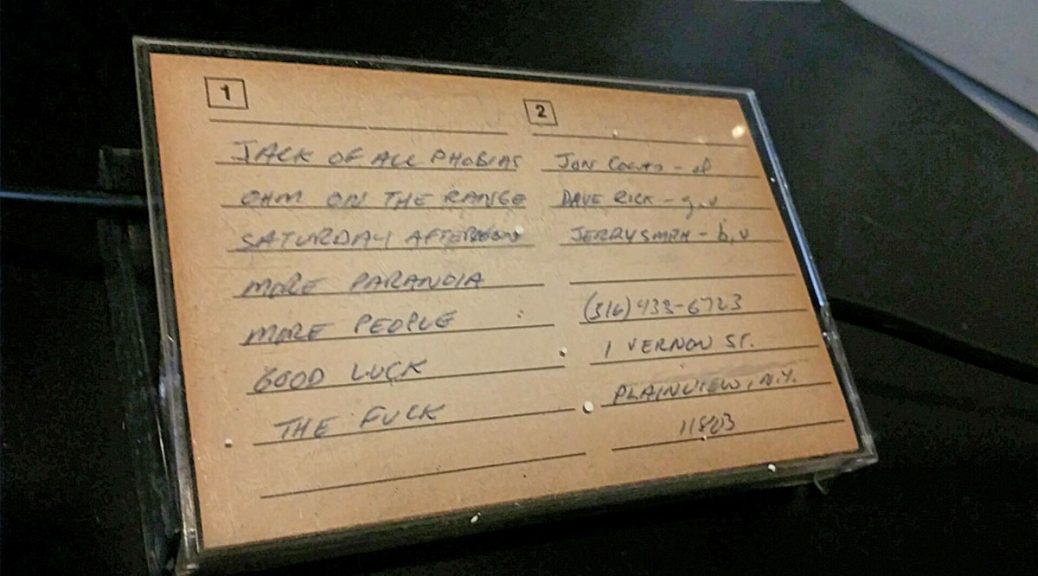 1
JACK OF ALL PHOBIAS
OHM ON THE RANGE
SATURDAY AFTERNOON
MORE PARANOIA
MORE PEOPLE
GOOD LUCK
THE FUCK
2
JON
DAVE RICK - g, v
JERRY SMITH - b, v
(516) 433-6723
1 VERNON ST.
PLAINVIEW, N.Y.
11803